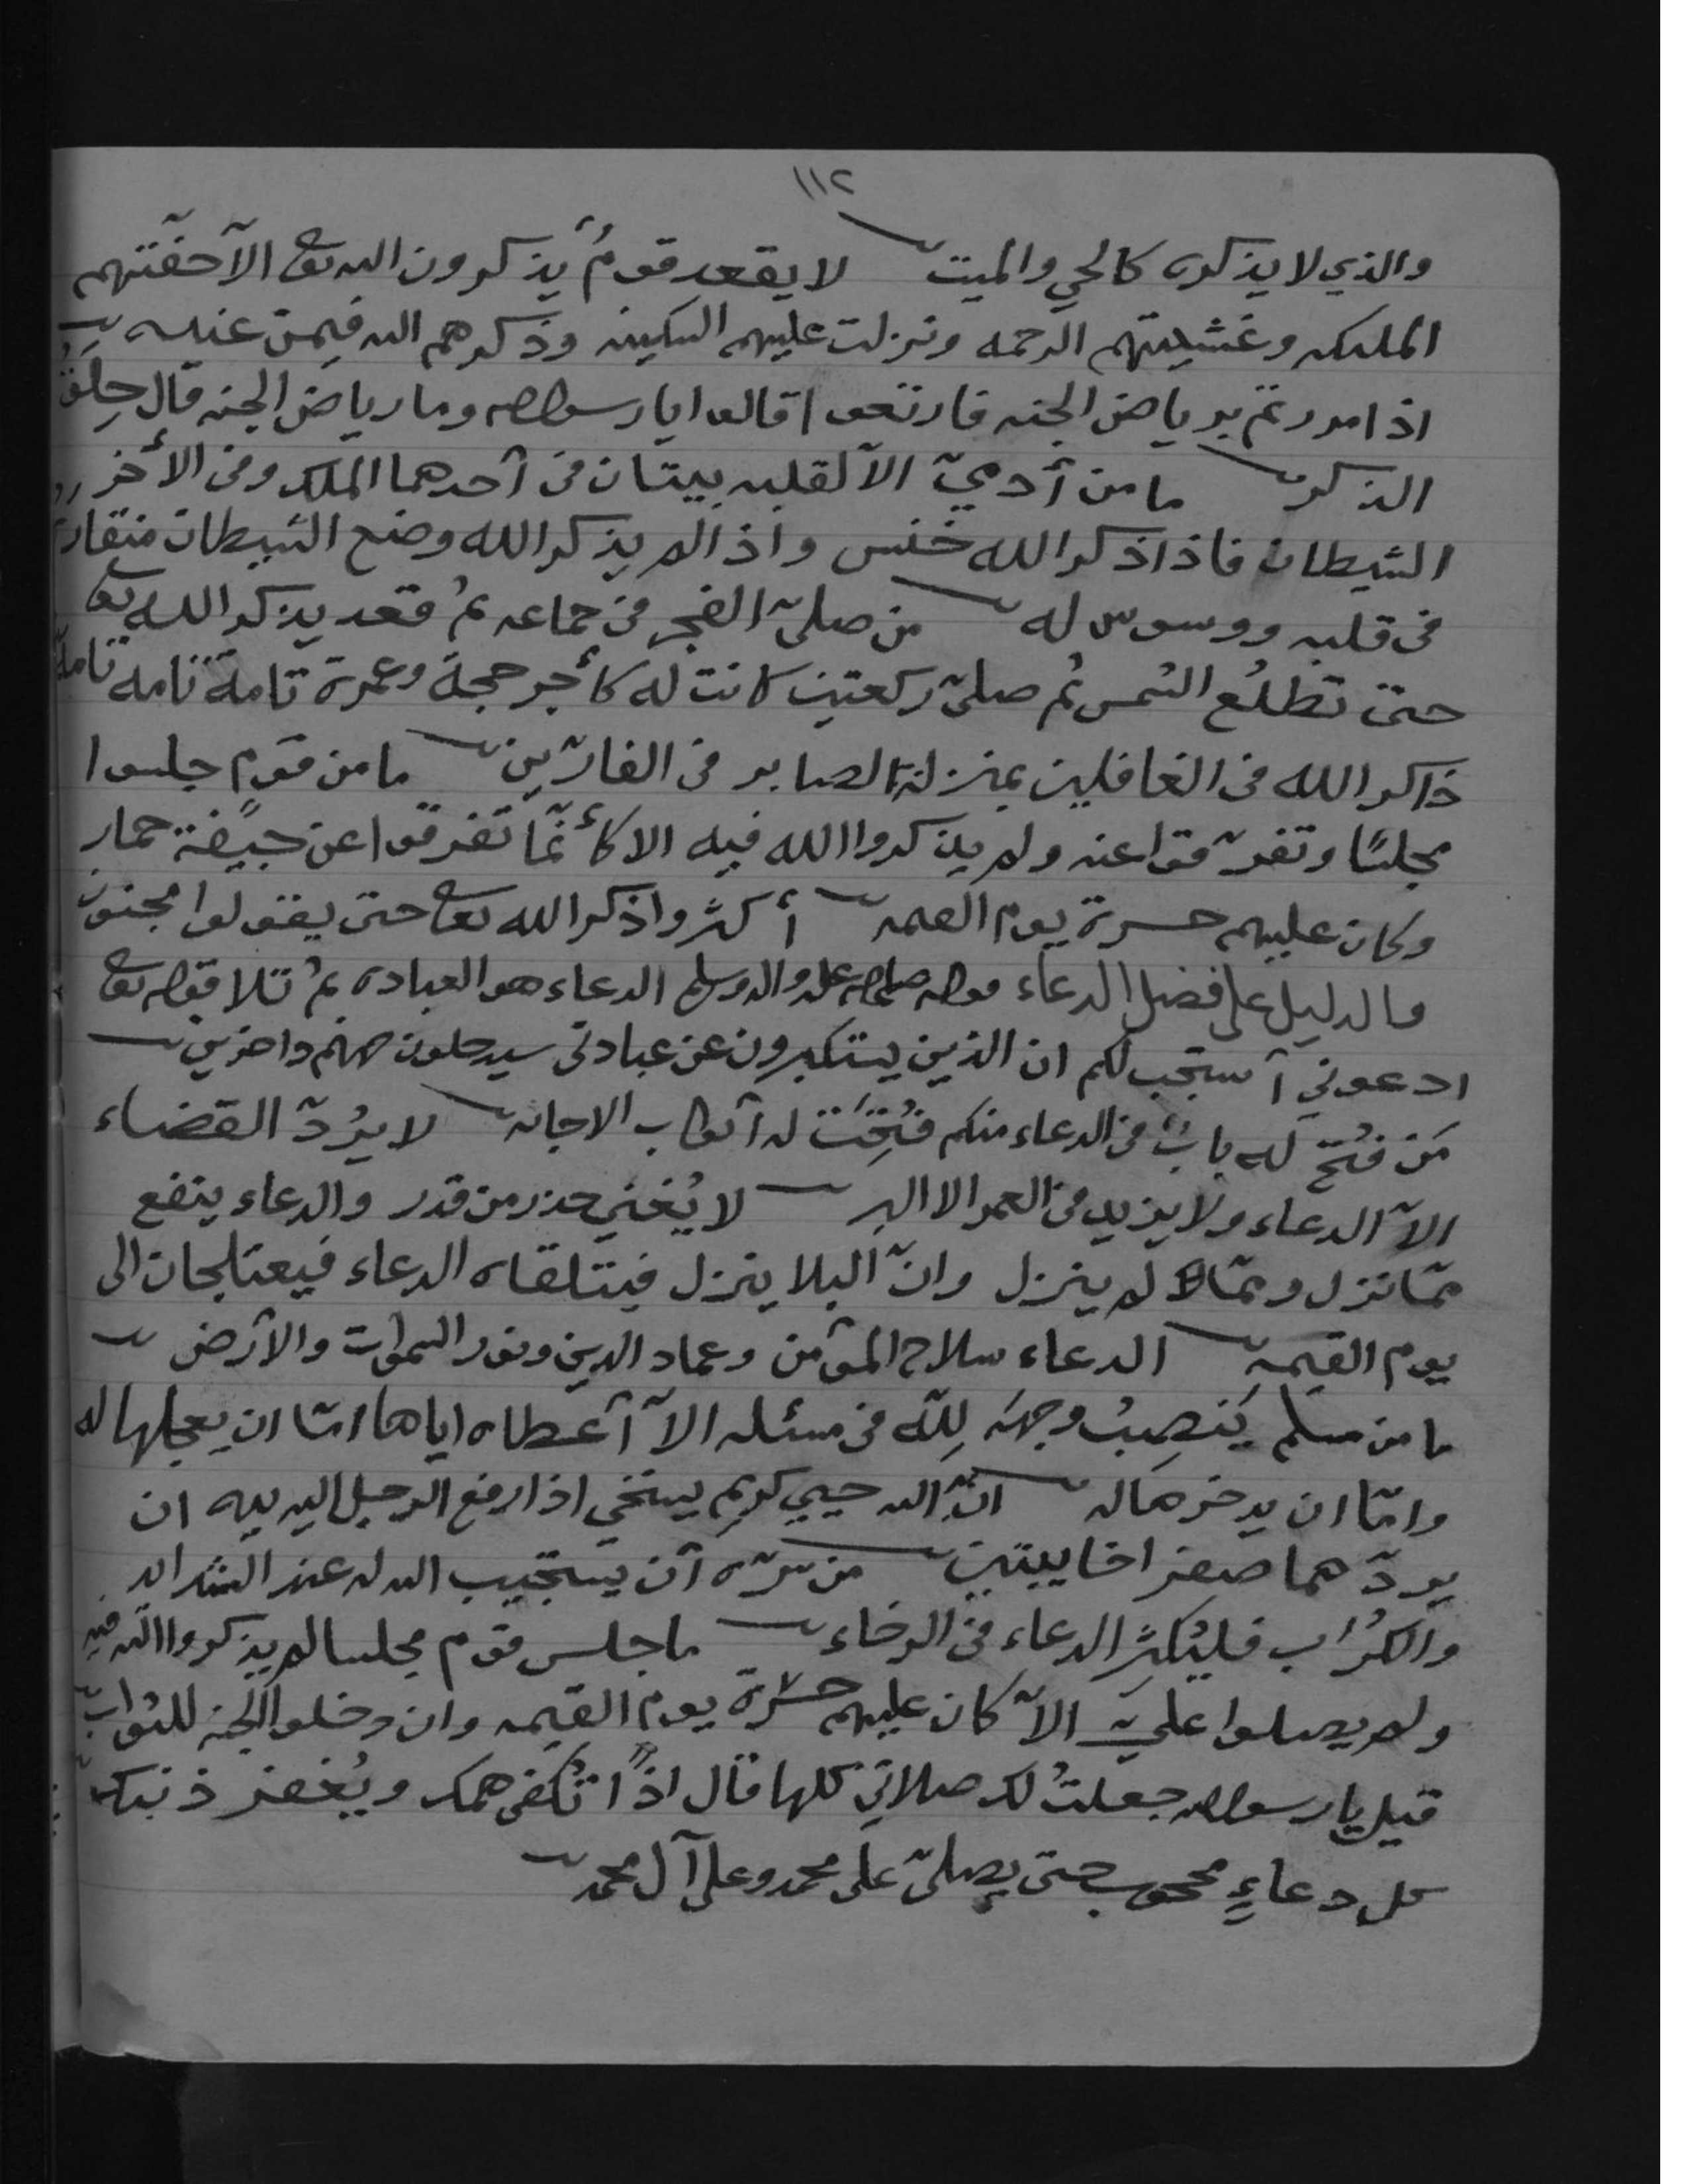 ١١٢
والذي لا يذكره كالحي والميت لا يقعد قومٌ يذكرون الله تعا الا حفّتهم
الملئكه وغشيتهم الرحمه ونزلت عليهم السكينه وذكرهم الله فيمن عنده
اذا مررتم برياض الجنه فارتعوا قالوا يا رسول الله وما رياض الجنه قال حِلَقُ
الذكر ما من آدميّ الا لقلبه بيتان في أحدهما الملك وفي الأخر
الشيطان فاذا ذكر الله خنس واذا لم يذكر الله وضع الشيطان منقاره
في قلبه ووسوس له من صلىّ الفجر في جماعه ثم قعد يذكر الله تعا
حتى تطلُع الشمس ثم صلىّ ركعتين كانت له كأجر حجة وعمرة تامة تامه تامة
ذاكر الله في الغافلين بمنزلة الصابر في الفارّين ما من قوم جلسوا
مجلسًا وتفرّقوا عنه ولم يذكروا الله فيه الا كأنّما تفرقوا عن جيفة حمار
وكان عليهم حسرة يوم القيمه أكثروا ذكر الله تعا حتى يقولوا مجنون
والدليل على فضل الدعاء قوله صلى الله عليه واله وسلم الدعاء هو العباده ثم تلا قوله تعا
ادعوني أستجب لكم ان الذين يستكبرون عن عبادتي سيدخلون جهنم داخرين
مَن فُتح له بابٌ في الدعاء منكم فُتِحَت له أبواب الاجابه لا يرُدّ القضاء
الاّ الدعاء ولا يزيد في العمر الا البر لا يُغني حذر من قدر والدعاء ينفع
ممّا نزل وممّا لم ينزل وانّ البلا ينزل فيتلقاه الدعاء فيعتلجان الى
يوم القيمه الدعاء سلاح المؤمن وعماد الدين ونور السموات والأرض
ما من مسلم يَنصِبُ وجهه لِلّه في مسئله الاّ أعطاه اياها امّا ان يعجلها له
وامّا ان يدخرها له انّ الله حيي كريم يستحي اذا رفع الرجل اليه يديه ان
يردّهما صفرا خايبتين من سرّه أن يستجيب الله له عند الشدايد
والكُرَب فليُكثِر الدعاء في الرخاء ما جلس قوم مجلسا لم يذكروا الله فيه
ولم يصلوا عليّ الاّ كان عليهم حسْرة يوم القيمه وان دخلوا الجنه للثواب
قيل يا رسول الله جعلتُ لك صلاتي كلها قال اذًا تُكفى همك ويُغفر ذنبك
كل دعاءٍ محجوب حتى يصلىّ على محمد وعلى آل محمد